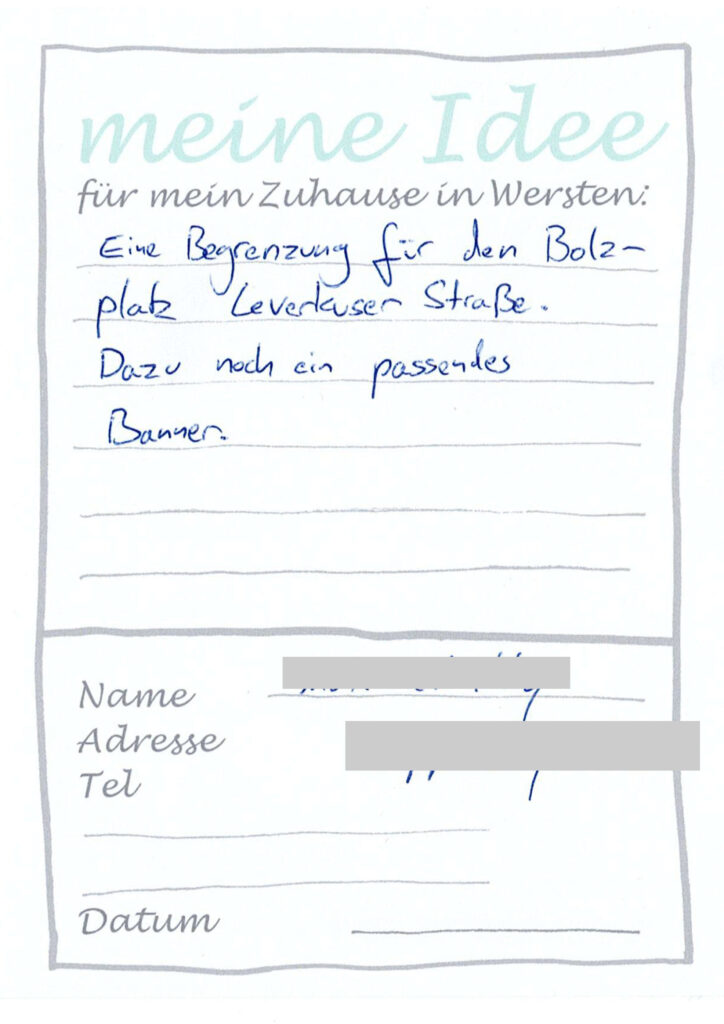 meine Idee
für mein Zuhause in Wersten:
Eine Begrenzung für den Bolz-
platz Leverkuser Straße.
Dazu noch ein passendes
Banner.
Name
Adresse
Tel
Datum